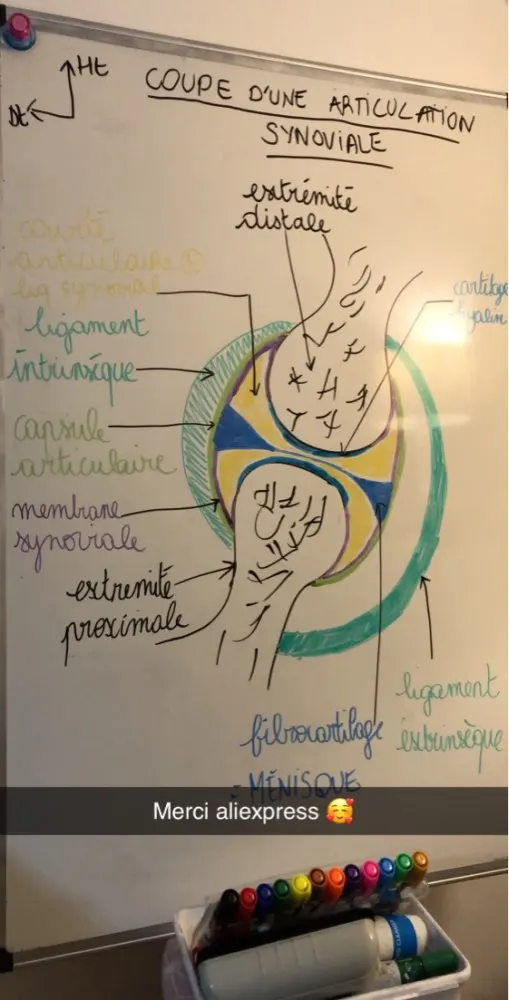 Ht
Dt
COUPE D'UNE ARTICULATION
SYNOVIALE
extrémité
distale
cavité
articulaire
liq synovial
cartilage
hyalin
ligament
intrinsèque
capsule
articulaire
membrane
synoviale
extremité
proximale
ligament
extrinsèque
fibrocartilage
= MÉNISQUE
Merci aliexpress 🥰
CLEANER